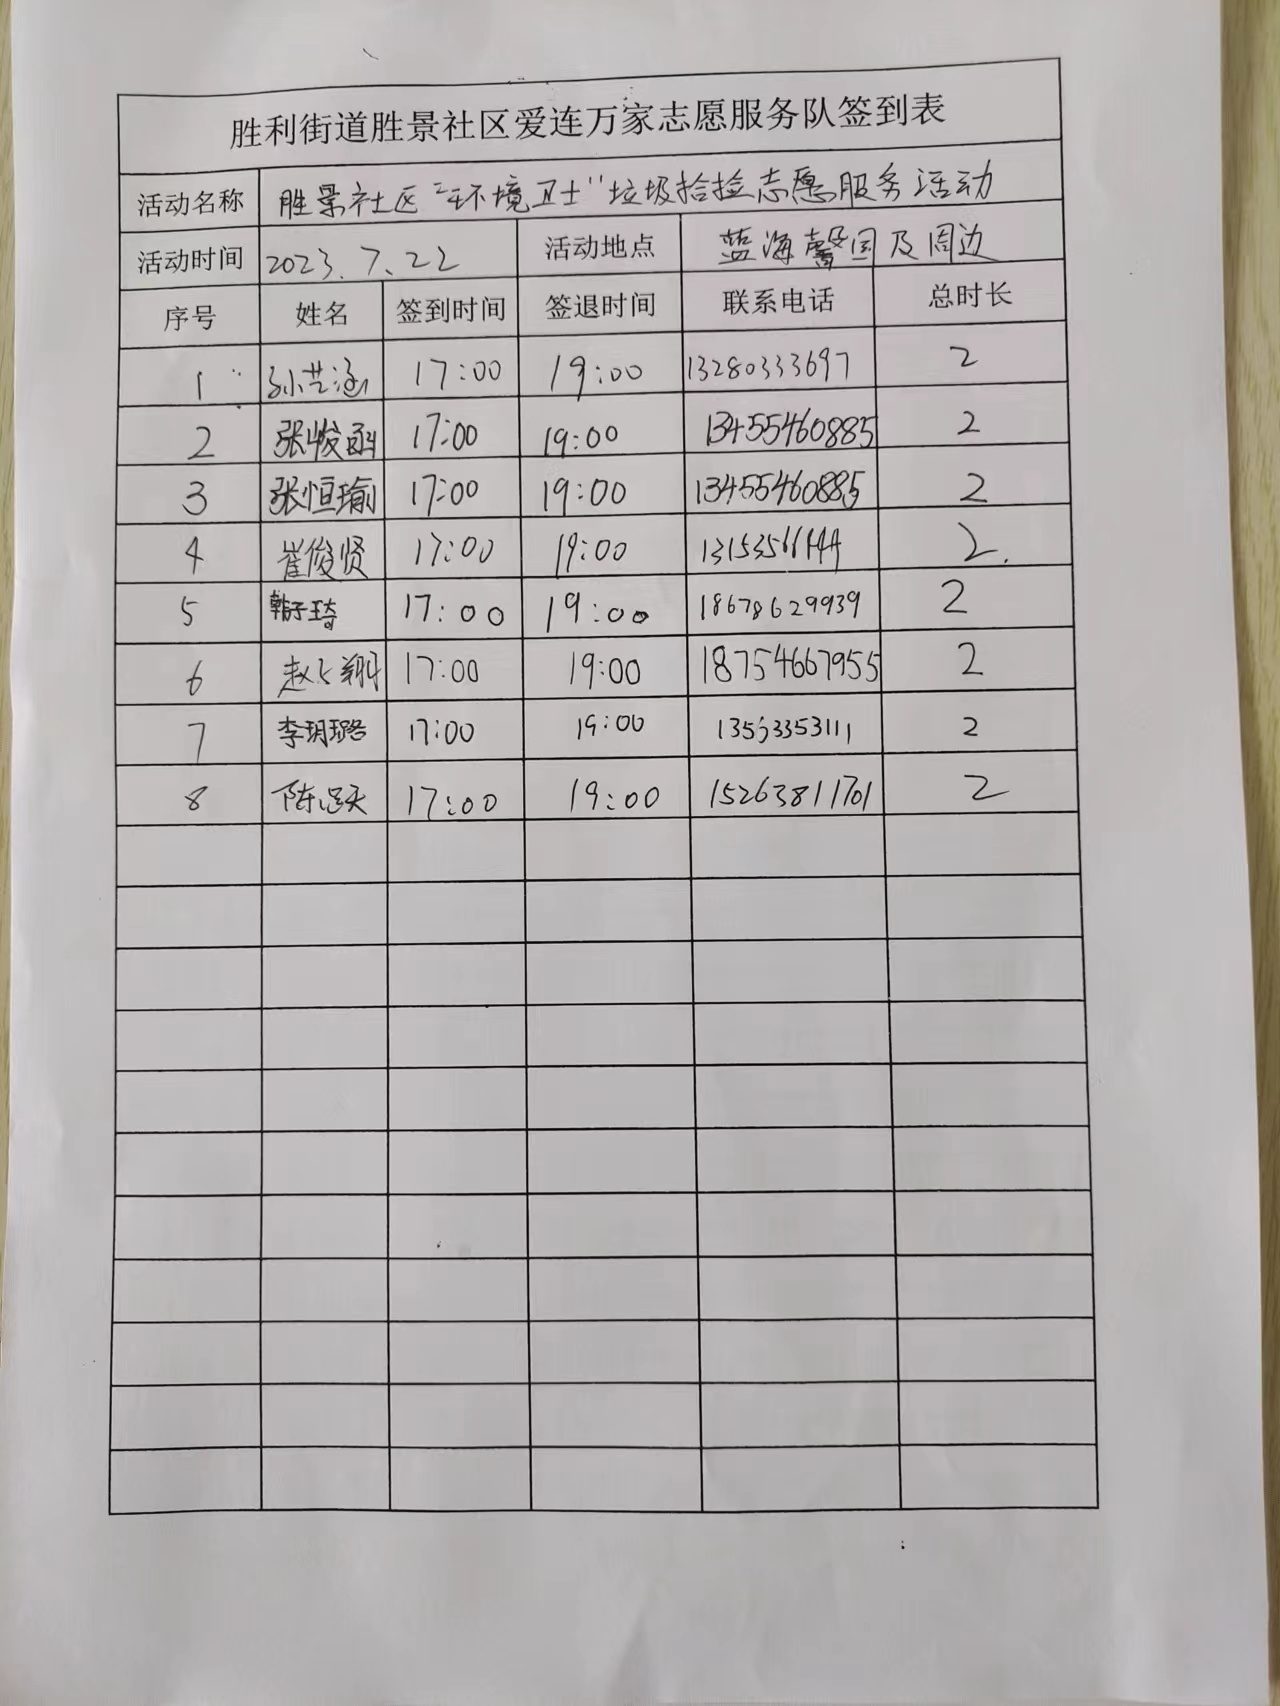 胜利街道胜景社区爱连万家志愿服务队签到表
活动名称 胜景社区“环境卫士”垃圾拾捡志愿服务活动
活动时间 2023.7.22 活动地点 蓝海馨园及周边
序号 姓名 签到时间 签退时间 联系电话 总时长
1 孙艺涵 17:00 19:00 13280333697 2
2 张峻函 17:00 19:00 13455460885 2
3 张恒瑜 17:00 19:00 13455460885 2
4 崔俊贤 17:00 19:00 2
5 韩子琦 17:00 19:00 18678629939 2
6 赵 翔 17:00 19:00 18754667955 2
7 李玥璐 17:00 19:00 13563353111 2
8 陈 天 17:00 19:00 15263811701 2